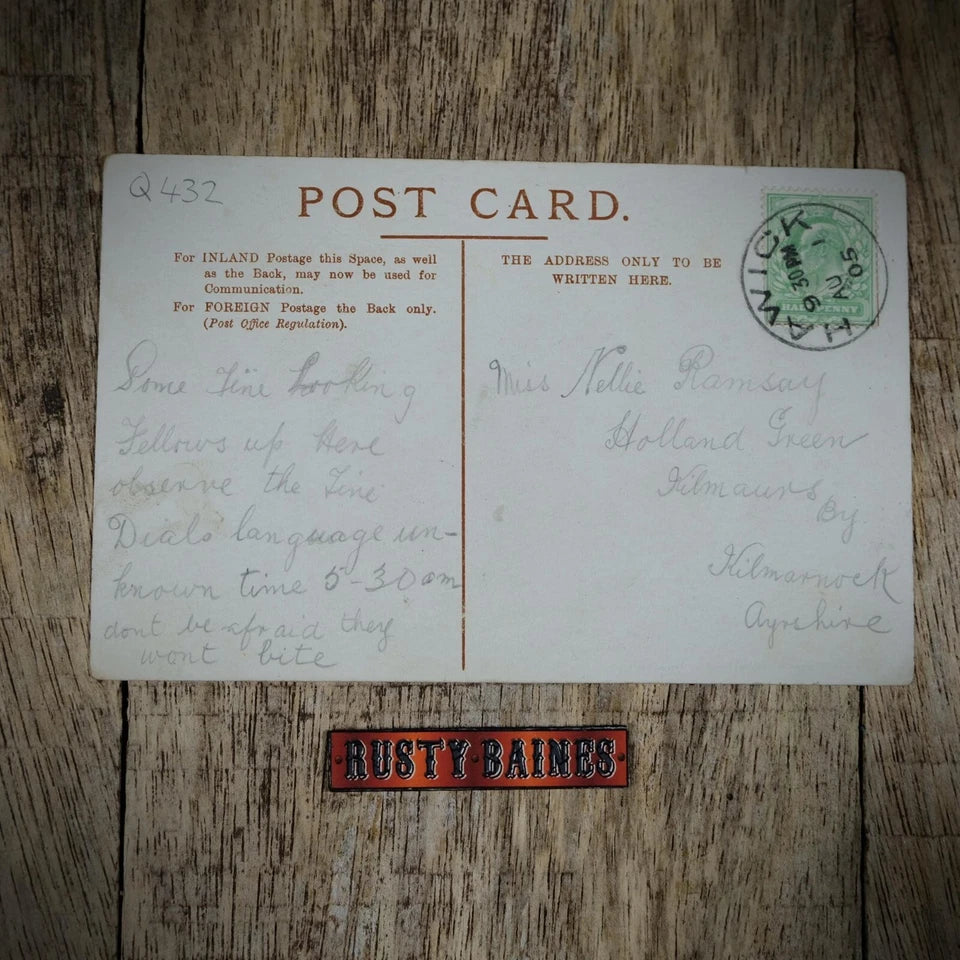 Q432
POST CARD.
For INLAND Postage this Space, as well
as the Back, may now be used for
Communication.
For FOREIGN Postage the Back only.
(Post Office Regulation).
THE ADDRESS ONLY TO BE
WRITTEN HERE.
HAWICK
9 30 PM
AU 1
05
HALFPENNY
Some Fine Looking
Fellows up Here
observe the Fine
Dials language un-
known time 5-30 am
dont be afraid they
wont bite
Miss Nellie Ramsay
Holland Green
Kilmaurs
By
Kilmarnock
Ayrshire
RUSTY BAINES